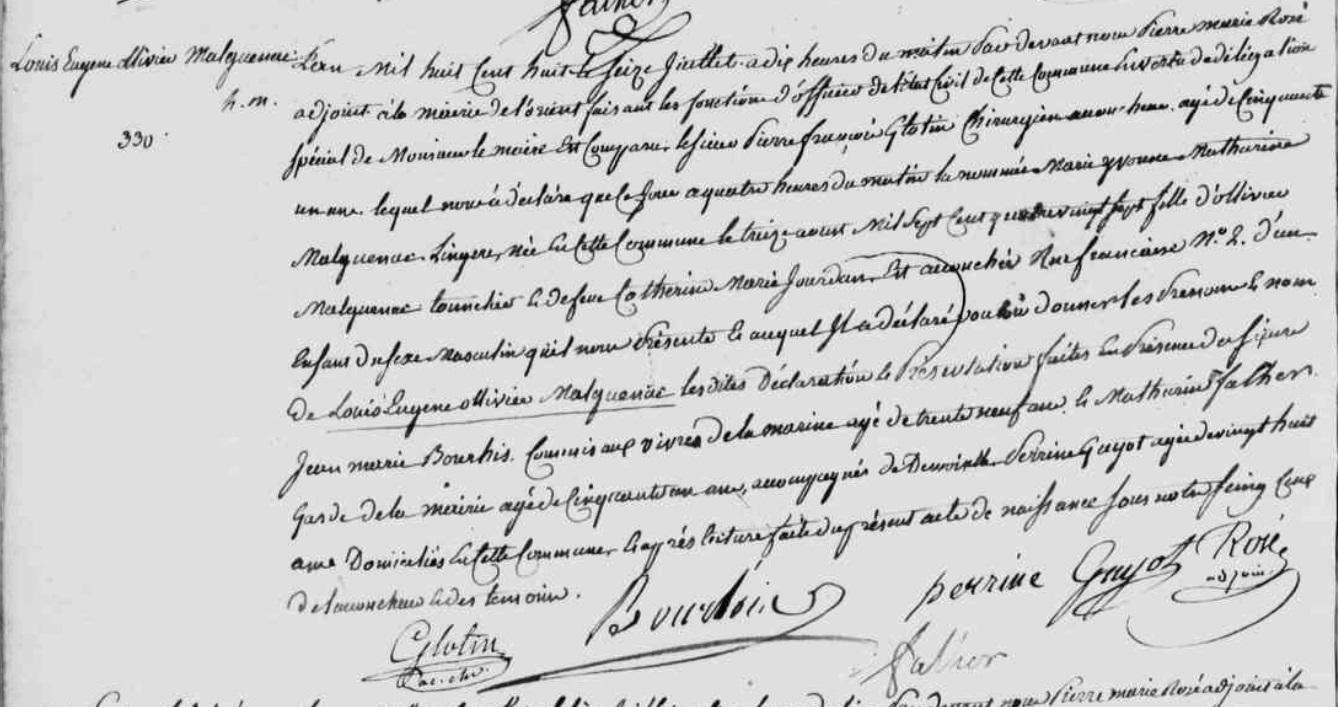 Louis Eugene ollivier Malguenac
h. m.
330.
L'an Mil huit Cent huit le Seize Juillet a dix heures du matin Par devant nous Pierre marie Rosé
adjoint à la mairie de l'orient faisant les fonctions d'officier de l'état Civil de Cette Commune En vertu de délégation
spécial de Monsieur le maire Est Comparu, le sieur Pierre françois Glotin Chirurgien accoucheur agé de Cinquante
un ans. lequel nous à déclaré que Ce jour a quatre heures du matin la nommée Marie yvonne Mathurine
Malguenac Lingere, née En Cette Commune le treize aoust Mil Sept Cent quatrevingt Sept fille d'ollivier
Malguenac & defeue Catherine Marie Jourdan, Est accouchée Rue française N.° 2. d'un
Enfant du sexe Masculin qu'il nous Présente & auquel Il a déclaré vouloir donner les Prenoms & nom
De Louis Eugene ollivier Malguenac les dites Déclaration & Présentation faites En Présence des sieurs
Jean marie Bourhis. Commis aux vivres de la marine agé de trente neuf ans. & Mathurin falher
Garde de la mairie agé de Cinquante un ans, accompagnés de Demoiselle Perrine Guyot agée de vingt huit
ans Domiciliés En Cette Commune, & après lecture faite du présent acte de naissance sous notre seing Ceux
de l'accoucheur & des temoins.
Bourhis
perrine Guyot
Rosé
adjoint
Glotin
falher
nous Pierre marie Rosé adjoint à la